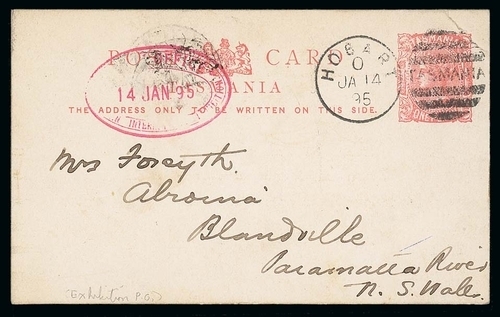 POST CARD
TASMANIA
THE ADDRESS ONLY TO BE WRITTEN ON THIS SIDE.
14 JAN 95
HOBART
O
JA 14
95
TASMANIA
Mrs Forsyth.
Blandville
Paramatta River
N. S. Wales.
(Exhibition P.O.)